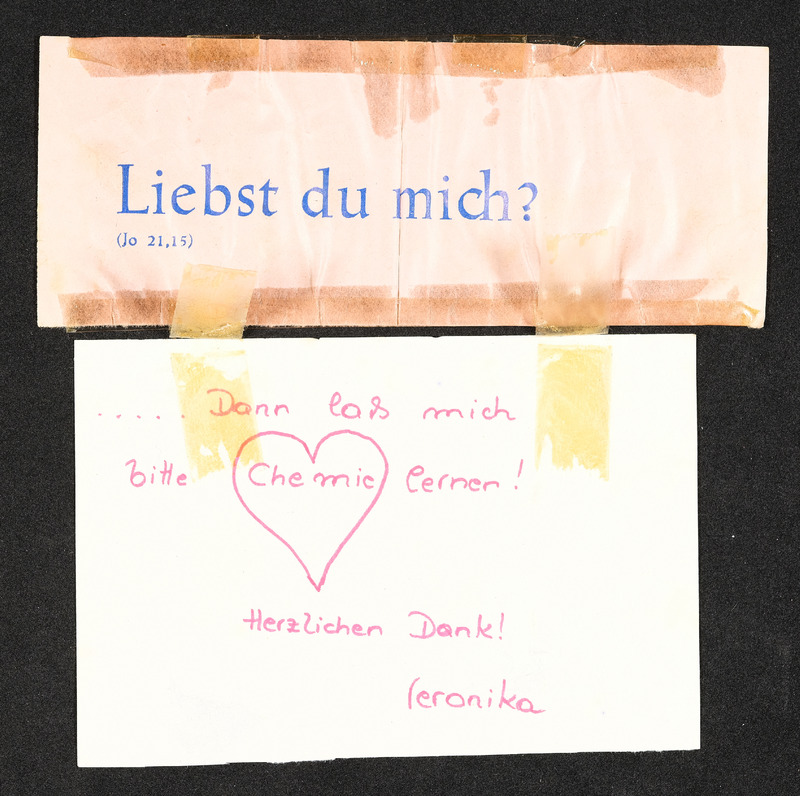 Liebst du mich?
(Jo 21,15)
..... Dann laß mich
bitte Chemie lernen!
Herzlichen Dank!
Veronika